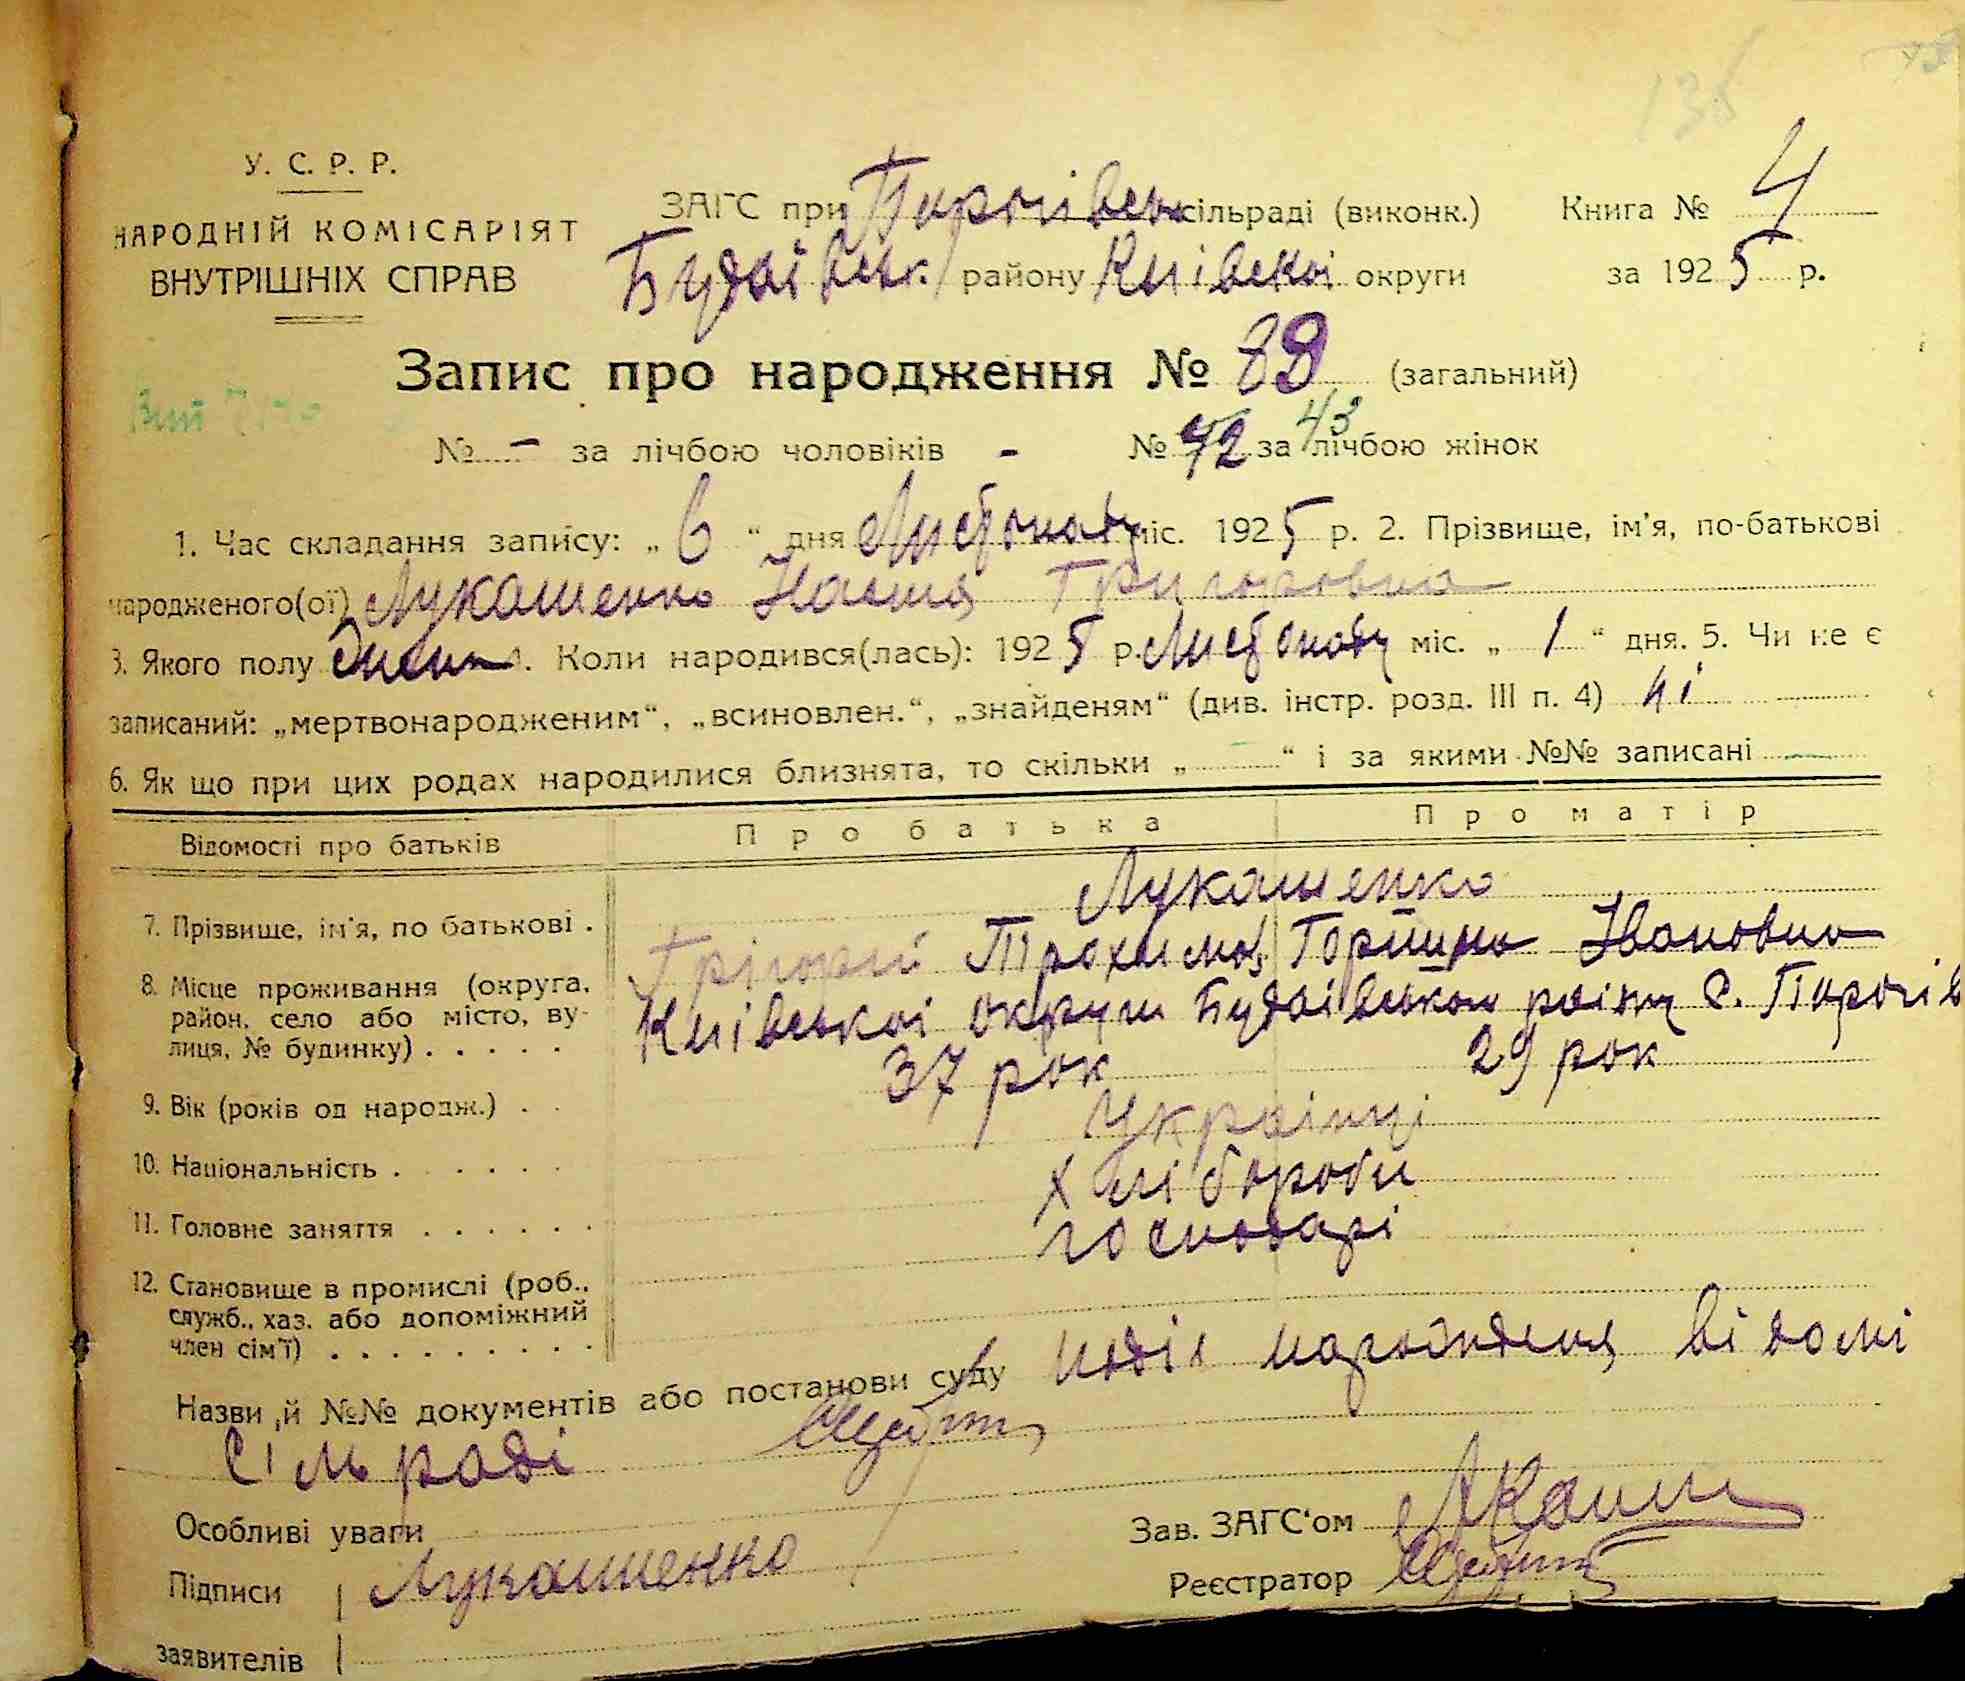 136
У. С. Р. Р.
НАРОДНІЙ КОМІСАРІЯТ
ВНУТРІШНІХ СПРАВ
ЗАГС при Пирогівсько сільраді (виконк.) Книга № 4
Будаївськ. району Київскої округи за 1925 р.
Запис про народження № 89 (загальний)
43
№ - за лічбою чоловіків - № 42 за лічбою жінок
1. Час складання запису: „ 6 “ дня Листопаду міс. 1925 р. 2. Прізвище, ім'я, по-батькові
народженого(ої) Лукашенко Настя Григоровна
3. Якого полу 4. Коли народився(лась): 1925 р. Листопаду міс. „ 1 “ дня. 5. Чи не є
записаний: „мертвонародженим“, „всиновлен.“, „знайденям“ (див. інстр. розд. III п. 4) ні
6. Як що при цих родах народилися близнята, то скільки „ - “ і за якими №№ записані -
Відомості про батьків Про батька Про матір
Лукашенко
7. Прізвище, ім'я, по батькові . Грігорій Трохимов. Горпина Івановна
8. Місце проживання (округа, район, село або місто, вулиця, № будинку) . . . . . Київської округи Будаївського раіну с. Пирогів
9. Вік (років од народж.) . . 37 рок 29 рок
10. Національність . . . . . . Українці
11. Головне заняття . . . . . . хлібороби
12. Становище в промислі (роб., служб., хаз. або допоміжний член сім'ї) . . . . . . . . . господарі
Назви й №№ документів або постанови суду подія народження відомі
сільраді
Особливі уваги
Зав. ЗАГС'ом
Підписи Лукашенко Реєстратор
заявителів